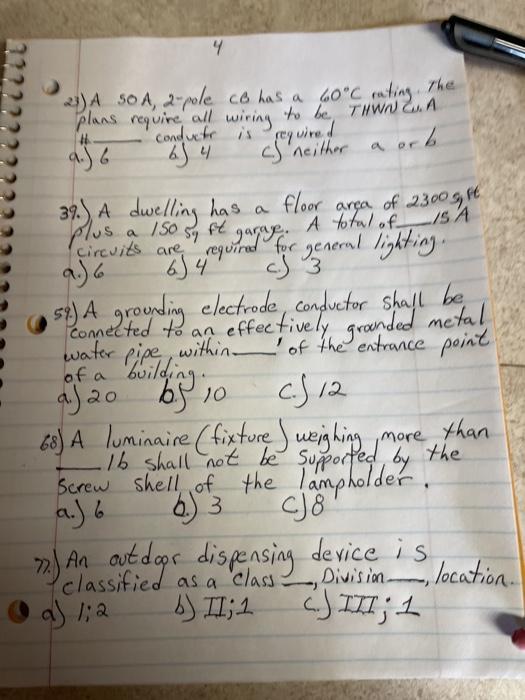 4
23.) A 50A, 2-pole CB has a 60°C rating. The
plans require all wiring to be THWN Cu. A
#____ conductr is required.
a.) 6 b) 4 c) neither a or b
39.) A dwelling has a floor area of 2300 sq ft
plus a 150 sq ft garage. A total of ___ 15 A
circuits are required for general lighting.
a.) 6 b) 4 c.) 3
59.) A grounding electrode conductor shall be
connected to an effectively grounded metal
water pipe within ___' of the entrance point
of a building.
a.) 20 b.) 10 c.) 12
68) A luminaire (fixture) weighing more than
___ lb shall not be supported by the
screw shell of the lampholder.
a.) 6 b.) 3 c) 8
77.) An outdoor dispensing device is
classified as a Class ___, Division ___, location.
a) 1; 2 b) II; 1 c.) III; 1